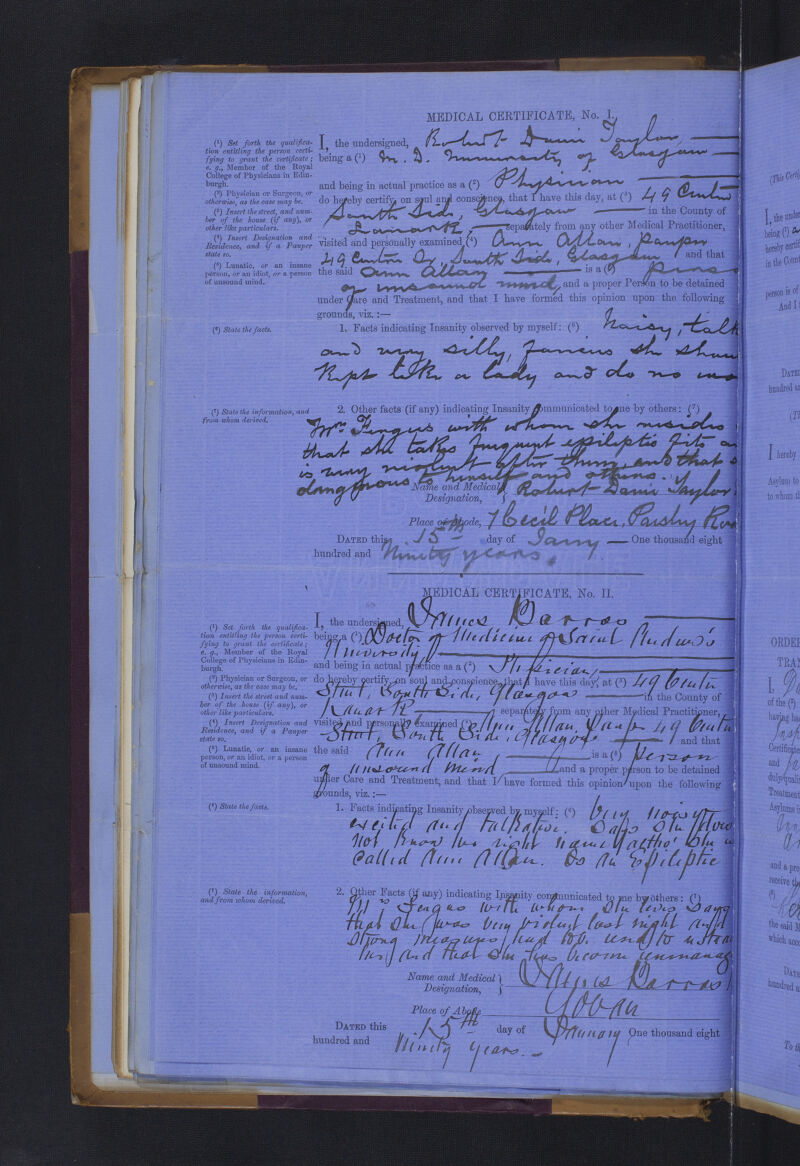 MEDICAL CERTIFICATE, No. I.
(¹) Set forth the qualifica-
tion entitling the person certi-
fying to grant the certificate;
e. g., Member of the Royal
College of Physicians in Edin-
burgh.
(²) Physician or Surgeon, or
otherwise, as the case may be.
(³) Insert the street, and num-
ber of the house (if any), or
other like particulars.
(⁴) Insert Designation and
Residence, and if a Pauper
state so.
(⁵) Lunatic, or an insane
person, or an idiot, or a person
of unsound mind.
I, the undersigned, Robert Taylor
being a (¹) M. D. University of Glasgow
and being in actual practice as a (²) Physician
do hereby certify, on soul and conscience, that I have this day, at (³) 49 Centre
South Side, Glasgow in the County of
Lanark, separately from any other Medical Practitioner,
visited and personally examined (⁴) Ann Allan, Pauper
49 Centre St, South Side, Glasgow and that
the said Ann Allan is a (⁵) pers
of unsound mind, and a proper Person to be detained
under Care and Treatment, and that I have formed this opinion upon the following
grounds, viz. :—
(⁶) State the facts.
1. Facts indicating Insanity observed by myself: (⁶) Noisy, talk
and very silly, fancies she shou
kept like a lady and do no wo
(⁷) State the information, and
from whom derived.
2. Other facts (if any) indicating Insanity communicated to me by others: (⁷)
Mrs. Fergus with whom she resides
that she takes frequent epileptic fits a
is very violent after them, and that s
dangerous to herself and others.
Name and Medical
Designation, Robert Taylor
Place of Abode, 7 Cecil Place, Paisley Roa
DATED this 15th day of Jany One thousand eight
hundred and Ninety years.
MEDICAL CERTIFICATE, No. II.
(¹) Set forth the qualifica-
tion entitling the person certi-
fying to grant the certificate;
e. g., Member of the Royal
College of Physicians in Edin-
burgh.
(²) Physician or Surgeon, or
otherwise, as the case may be.
(³) Insert the street and num-
ber of the house (if any), or
other like particulars.
(⁴) Insert Designation and
Residence, and if a Pauper
state so.
(⁵) Lunatic, or an insane
person, or an idiot, or a person
of unsound mind.
I, the undersigned, James Barras
being a (¹) Doctor of Medicine of Saint Andrew's
University
and being in actual practice as a (²) Physician,
do hereby certify, on soul and conscience, that I have this day, at (³) 49 Centre
Street, South Side, Glasgow in the County of
Lanark separately from any other Medical Practitioner,
visited and personally examined (⁴) Ann Allan, Pauper 49 Centre
Street, South Side, Glasgow and that
the said Ann Allan is a (⁵) person
of unsound mind and a proper person to be detained
under Care and Treatment, and that I have formed this opinion upon the following
grounds, viz. :—
(⁶) State the facts.
1. Facts indicating Insanity observed by myself: (⁶) Very noisy
excited and talkative. Says she does
not know her right name altho' she is
called Ann Allan. Is an Epileptic
(⁷) State the information,
and from whom derived.
2. Other Facts (if any) indicating Insanity communicated to me by others: (⁷)
Mrs Fergus with whom she lives says
that she was very violent last night and
strong measures had to be used to restrai
her, and that she has become unmanag
Name and Medical
Designation, James Barras
Place of Abode Govan
DATED this 15th day of January One thousand eight
hundred and Ninety years.
(This Certi
I, the unde
being (¹) a
hereby certi
in the Count
person is of
And I
DATE
hundred a
I hereby
Asylum to
to whom t
ORDE
TRA
I,
of the (¹)
having ba
Certificate
and
duly quali
Treatment
Asylums i
and a pro
receive th
the said
which acco
DATE
hundred a
To th